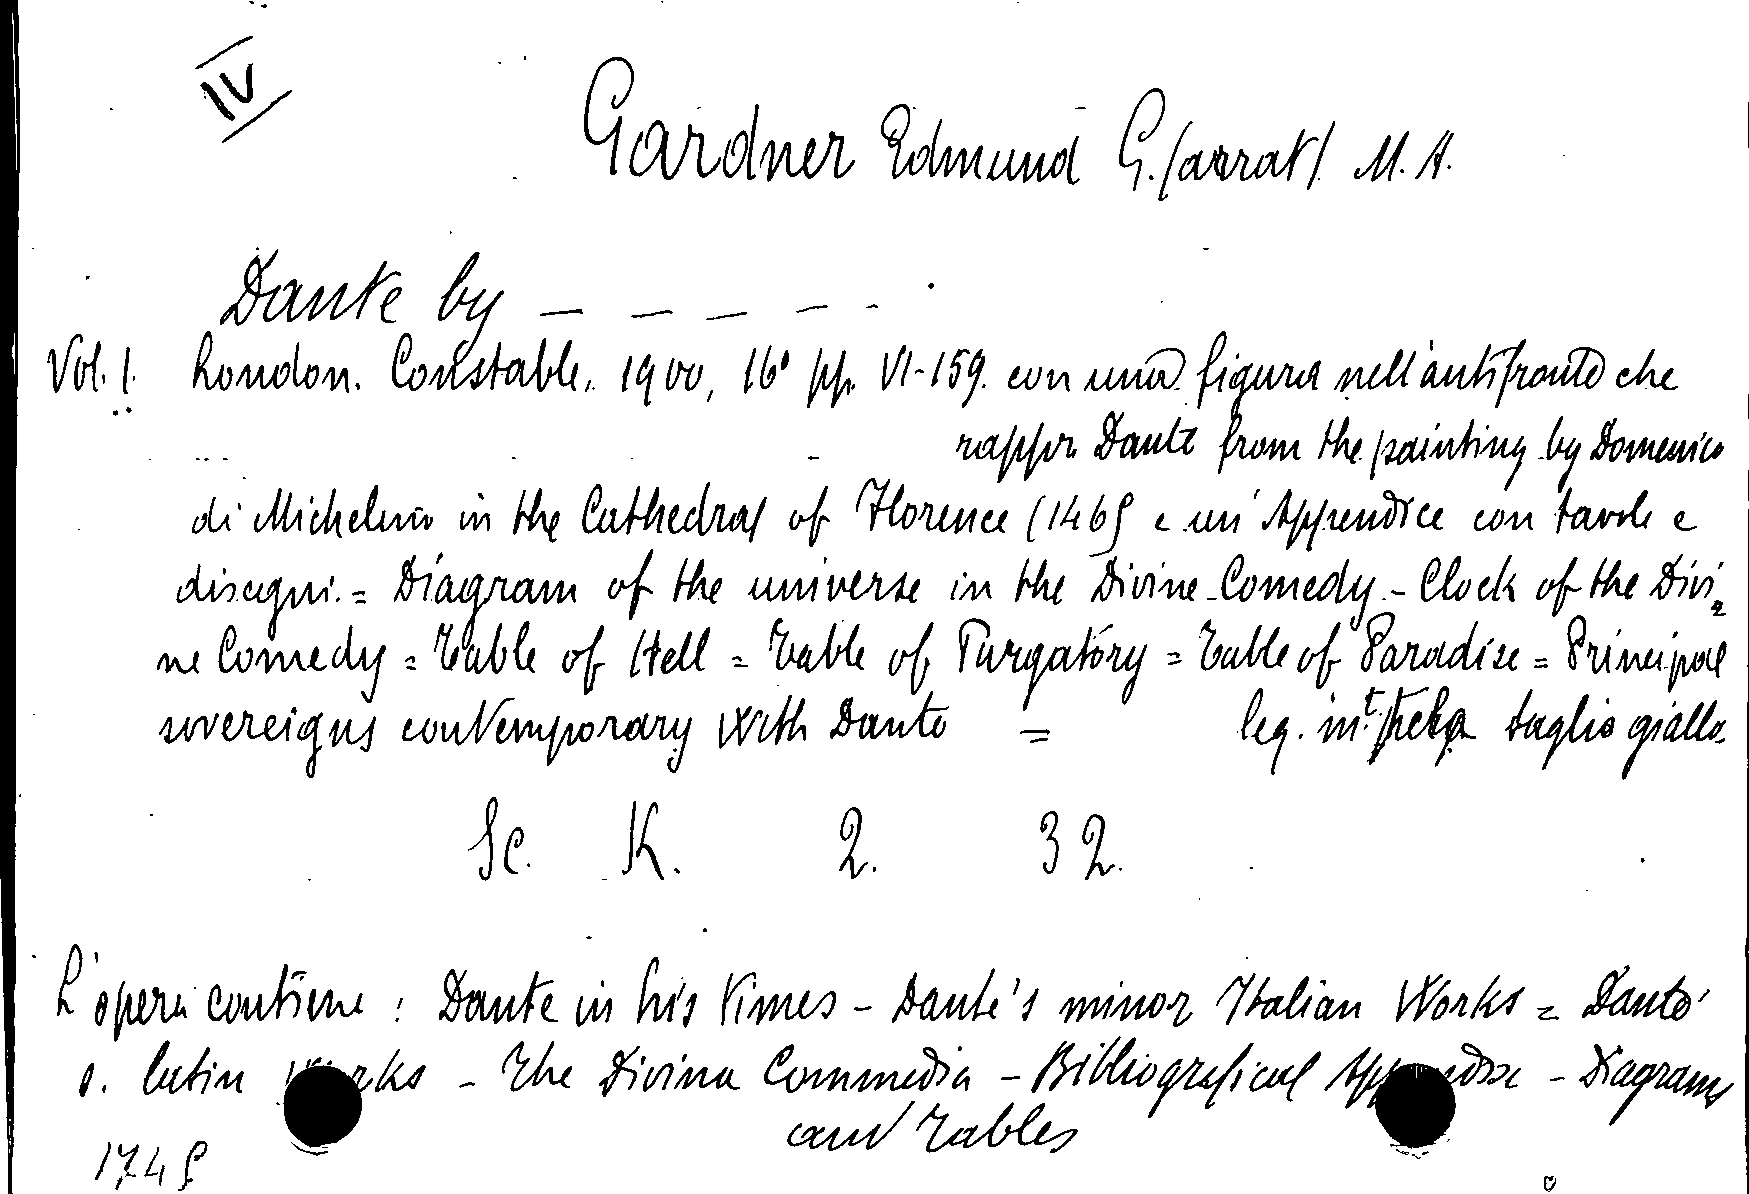 IV
Gardner Edmund G.(arrat) M. A.
Dante by _ _ _ _ _ .
Vol. 1. London. Constable. 1900, 16° pp. VI-159. con una figura nell'antifronte che
rappr. Dante from the painting by Domenico
di Michelino in the Cathedral of Florence (1465 e un' Appendice con tavole e
disegni. = Diagram of the universe in the Divine Comedy - Clock of the Divi=
ne Comedy = Table of Hell = Table of Purgatory = Table of Paradise = Principal
sovereigns contemporary with Dante = leg. in t. tela taglio giallo.
Sc. K. 2. 32.
L'opera contiene : Dante in his times - Dante's minor Italian Works = Dante'
s. latin Works - The Divina Commedia - Bibliografical Appendix - Diagrams
and Tables
1745